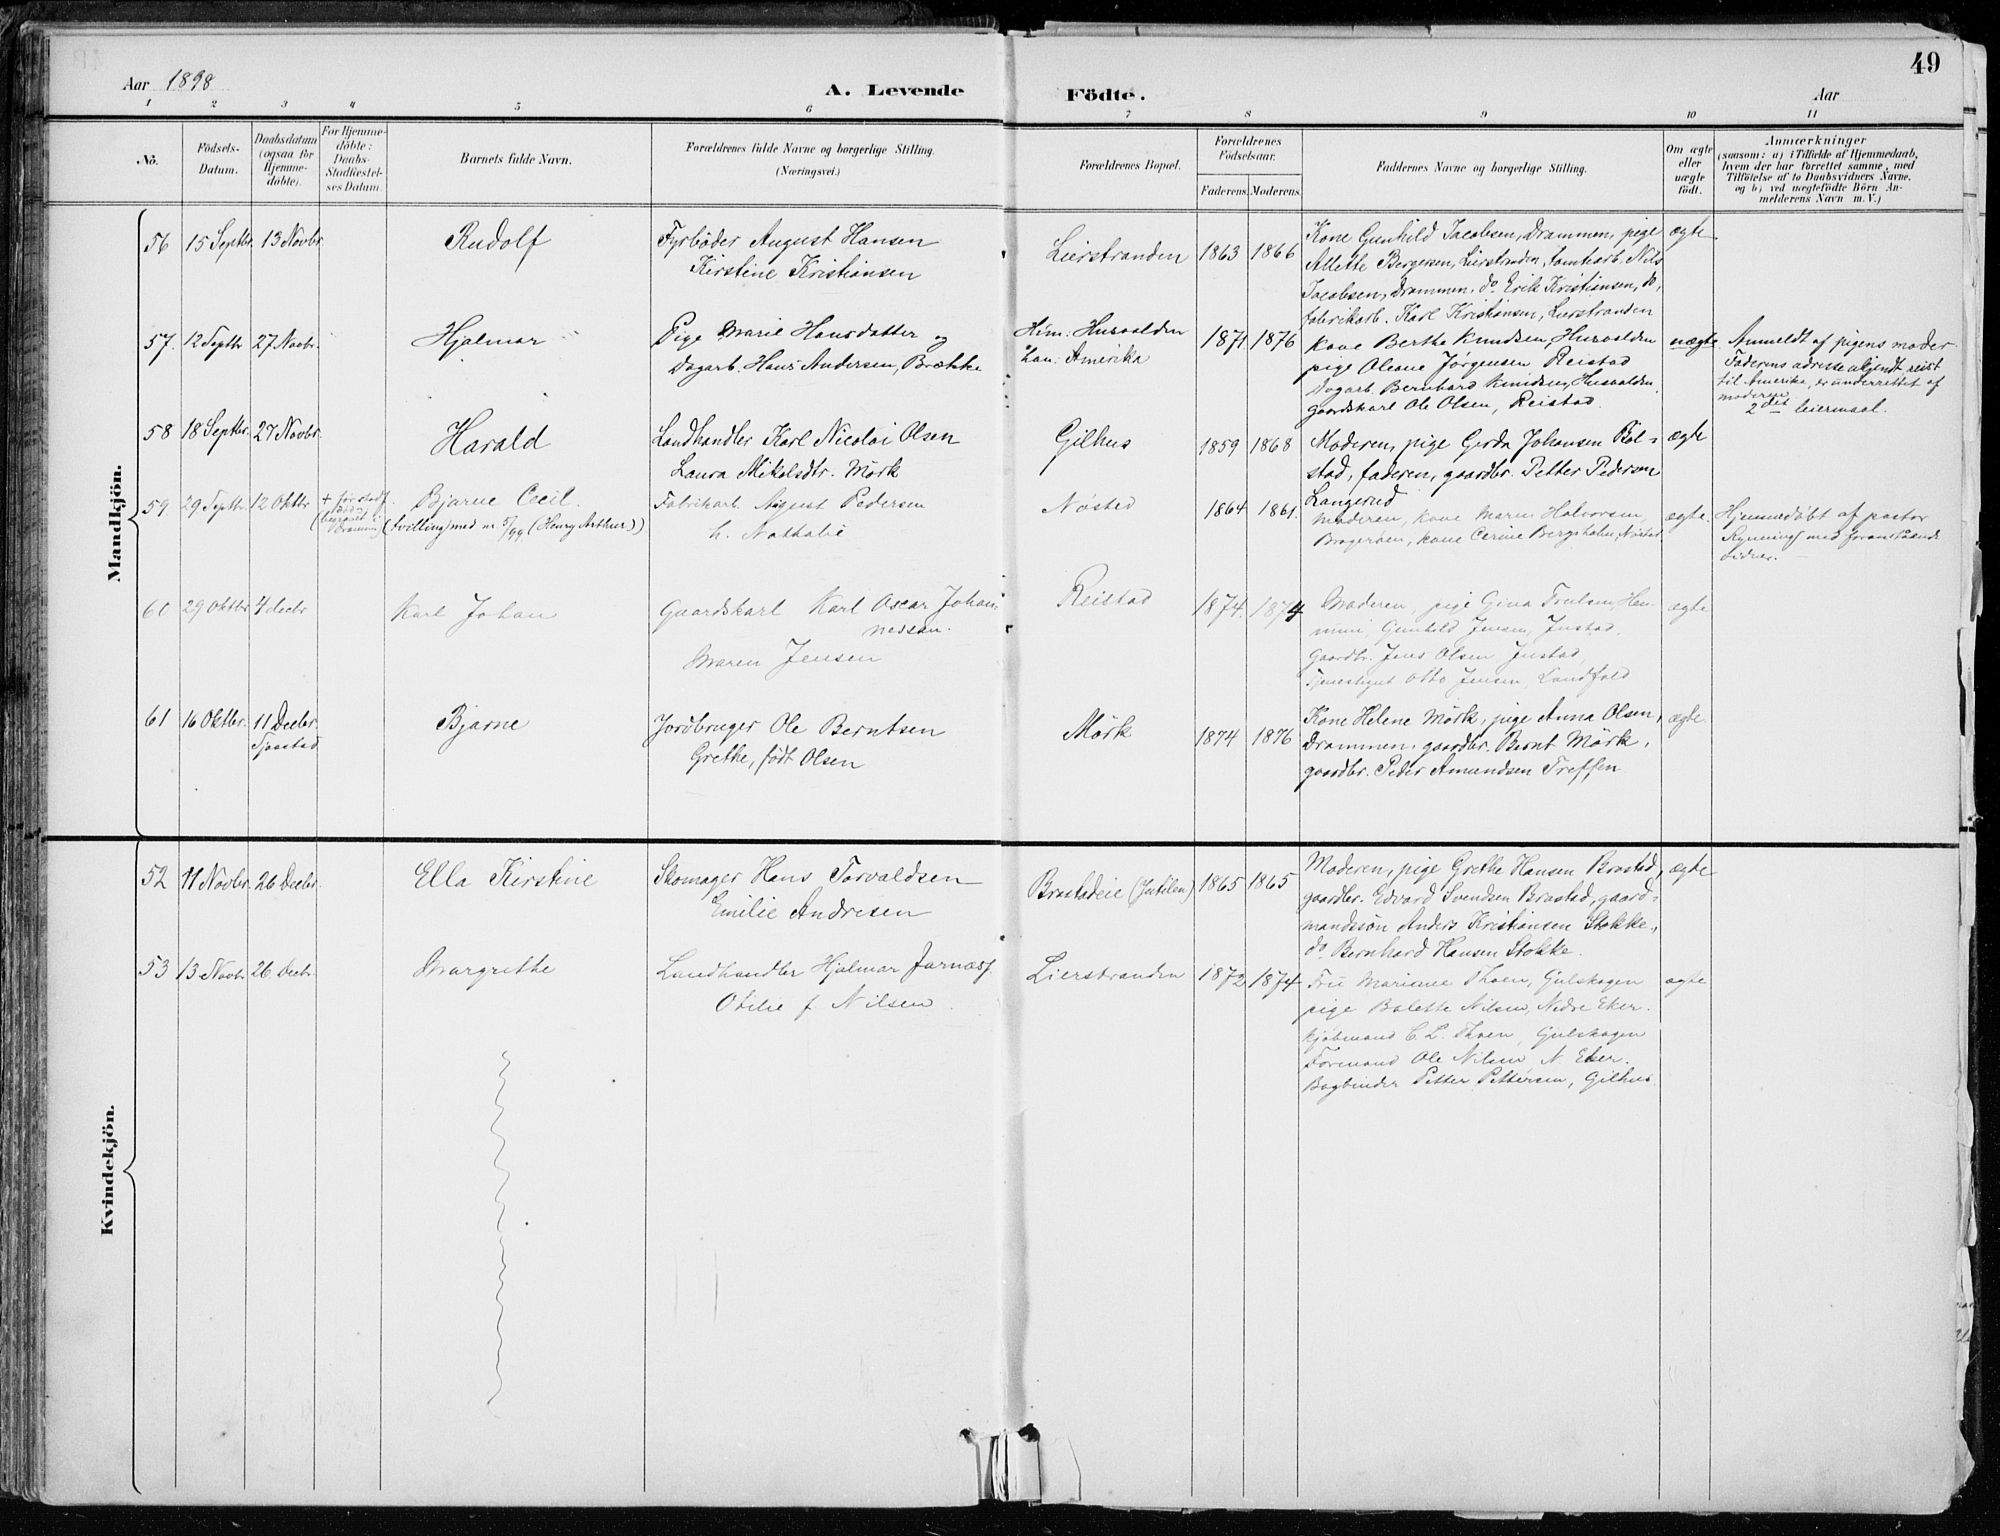 49
Aar 1898
A. Levende Födte.
Aar
1 2 3 4 5 6 7 8 9 10 11
No.
Födsels-Datum.
Daabsdatum (ogsaa for Hjemme-döbte).
For Hjemme-döbte: Daabs-Stadfæstel-ses Datum.
Barnets fulde Navn.
Forældrenes fulde Navne og borgerlige Stilling. (Næringsvei.)
Forældrenes Bopæl.
Forældrenes Födselsaar.
Faderens. Moderens.
Faddernes Navne og borgerlige Stilling.
Om ægte eller uægte födt.
Anmærkninger
(saasom: a) i Tilfælde af Hjemmedaab,
hvem der har forrettet samme, med
Tilföielse af to Daabsvidners Navne,
og b) ved uægtefödte Börn An-
melderens Navn m. V.)
Mandkjön.
56 15 Septbr. 13 Novbr. Rudolf
Fyrböder August Hansen
Kirstine Kristiansen
Lierstranden 1863 1866
Kone Gunhild Jacobsen, Drammen, pige
Allette Bergersen, Lierstranden, tomtearb. Nils
Jacobsen, Drammen, do Erik Kristiansen, do,
fabrikarb. Karl Kristiansen, Lierstranden
ægte
57. 12 Septbr 27 Novbr. Hjalmar
Pige Marie Hansdatter og
Dagarb. Hans Andersen, Brække
Hun: Husvalden
han: Amerika
1871 1876
Kone Berthe Knudsen, Husvalden
pige Oleane Jørgensen Reistad
Dagarb. Bernhard Knudsen, Husvalden
gaardskarl Ole Olsen, Reistad.
uægte
Anmeldt af pigens moder
Faderens adresse ukjendt, reist
til Amerika, er underrettet af
moderen
2det leiermaal.
58 18 Septbr. 27 Novbr. Harald
Landhandler Karl Nicolai Olsen
Laura Mikalsdtr. Mørk
Gilhus 1859 1868
Moderen, pige Gerda Johansen Bol-
stad, faderen, gaardbr. Petter Pedersen
Langerud
ægte
59 29 Septbr. 12 Oktbr
+ før stadf.
(begravet i Drammen)
Bjarne Cecil
(tvilling med nr. 5/99 (Henry Arthur))
Fabrikarb. August Pedersen
h. Nathalie
Nøsted 1864 1861.
Moderen, kone Maren Halvorsen
Bragerøen, kone Cerine Bergsholm, Nøsted
ægte.
Hjemmedøbt af pastor
Rynning med foranstaaende
vidner.
60 29 Oktbr 4 decbr Karl Johan
Gaardskarl Karl Oscar Johan-
nessen.
Maren Jensen
Reistad 1874. 1874
Moderen, pige Gina Trulsen, Hen-
Gunhild Jensen, Justad,
Gaardbr. Jens Olsen Justad,
Tjenestegut Otto Jensen, Landfald
ægte
61 16 Oktbr. 11 Decbr. Bjarne
Sjaastad
Jordbruger Ole Berntsen
Grethe, født Olsen
Mørk 1874 1876
Kone Helene Mørk, pige Anna Olsen,
Drammen, gaardbr. Bernt Mørk,
gaardbr. Peder Amundsen Treffen
ægte
Kvindekjön.
52 11 Novbr. 26 Decbr. Ella Kirstine
Skomager Hans Torvaldsen
Emilie Andresen
Brastadeie (Jutilen) 1865 1865
Moderen, pige Grethe Hansen Brastad,
gaardbr. Edvard Svendsen Brastad, gaard-
mandssøn Anders Kristiansen Stokke,
do Bernhard Hansen Stokke.
ægte
53 13 Novbr. 26 Decbr. Margrethe
Landhandler Hjalmar Jarnæs
Otilie f Nilsen
Lierstranden 1872 1874
Fru Mariane Thoen, Gulskogen
pige Bolette Nilsen, Nedre Eker.
kjøbmand C. L. Thoen, Gulskogen
Formand Ole Nilsen N. Eker.
Bogbinder Petter Pettersen, Gilhus
ægte